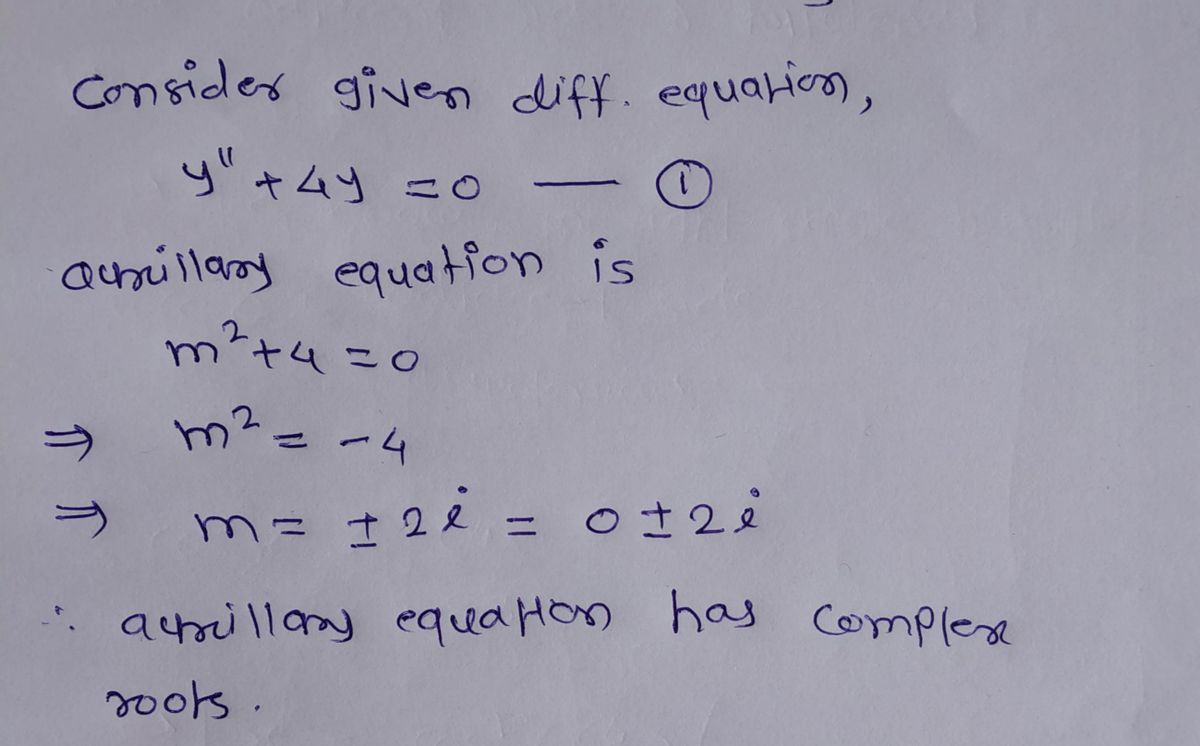 Consider given diff. equation,
y" + 4y = 0 — ①
auxillary equation is
m² + 4 = 0
⇒ m² = -4
⇒ m = ± 2i = 0 ± 2i
∴ auxillary equation has complex
roots.